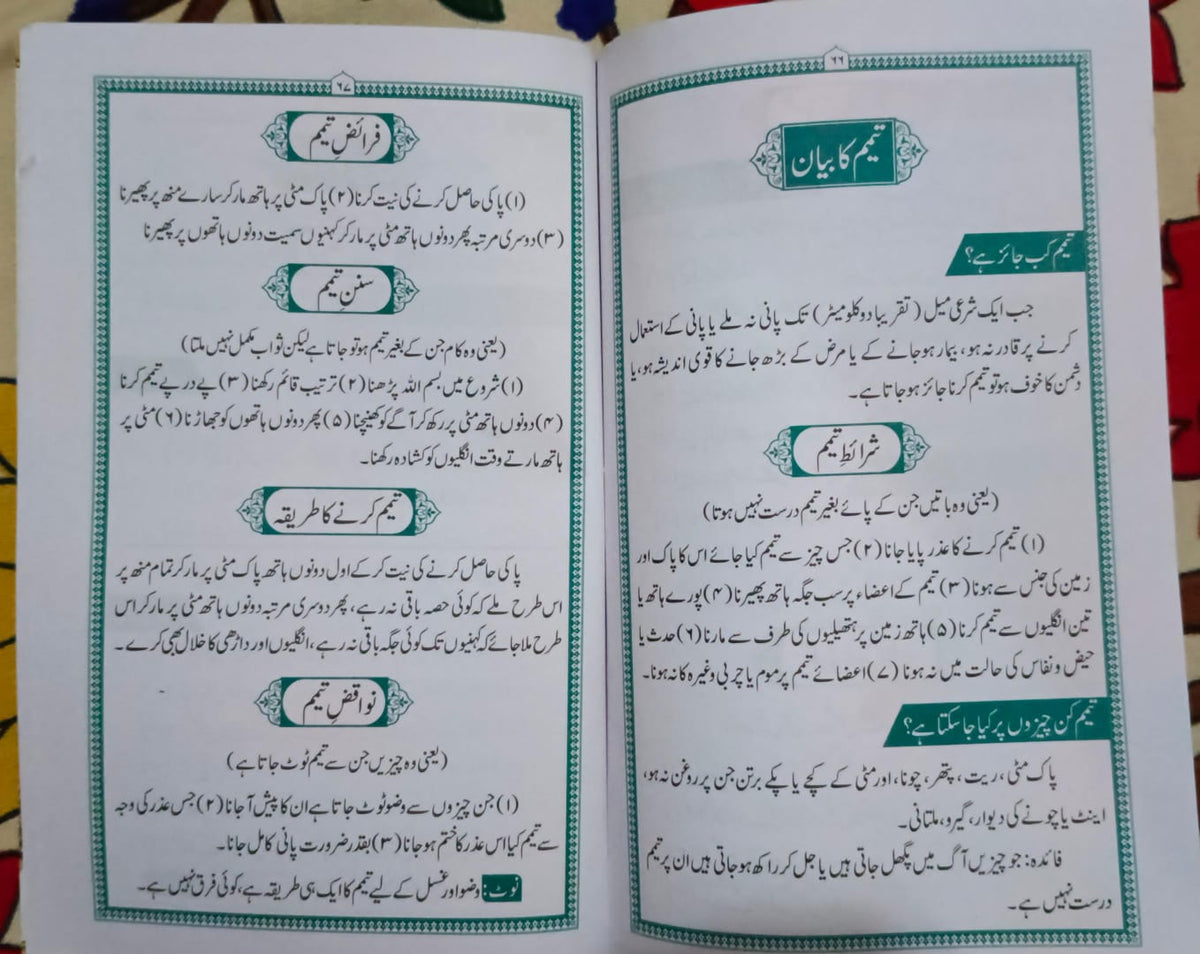 ۶۶
تیمم کا بیان
تیمم کب جائز ہے؟
جب ایک شرعی میل (تقریبا دو کلومیٹر) تک پانی نہ ملے یا پانی کے استعمال
کرنے پر قادر نہ ہو، بیمار ہو جانے کے یا مرض کے بڑھ جانے کا قوی اندیشہ ہو، یا
دشمن کا خوف ہو تو تیمم کرنا جائز ہو جاتا ہے۔
شرائطِ تیمم
(یعنی وہ باتیں جن کے پائے بغیر تیمم درست نہیں ہوتا)
(۱) تیمم کرنے کا عذر پایا جانا (۲) جس چیز سے تیمم کیا جائے اس کا پاک اور
زمین کی جنس سے ہونا (۳) تیمم کے اعضاء پر سب جگہ ہاتھ پھیرنا (۴) پورے ہاتھ یا
تین انگلیوں سے تیمم کرنا (۵) ہاتھ زمین پر ہتھیلیوں کی طرف سے مارنا (۶) حدث یا
حیض و نفاس کی حالت میں نہ ہونا (۷) اعضائے تیمم پر موم یا چربی وغیرہ کا نہ ہونا۔
تیمم کن چیزوں پر کیا جا سکتا ہے؟
پاک مٹی، ریت، پتھر، چونا، اور مٹی کے کچے یا پکے برتن جن پر روغن نہ ہو،
اینٹ یا چونے کی دیوار، گیرو، ملتانی۔
فائدہ: جو چیزیں آگ میں پگھل جاتی ہیں یا جل کر راکھ ہو جاتی ہیں ان پر تیمم
درست نہیں ہے۔
۶۷
فرائضِ تیمم
(۱) پاکی حاصل کرنے کی نیت کرنا (۲) پاک مٹی پر ہاتھ مار کر سارے منھ پر پھیرنا
(۳) دوسری مرتبہ پھر دونوں ہاتھ مٹی پر مار کر کہنیوں سمیت دونوں ہاتھوں پر پھیرنا
سننِ تیمم
(یعنی وہ کام جن کے بغیر تیمم ہو تو جاتا ہے لیکن ثواب مکمل نہیں ملتا)
(۱) شروع میں بسم اللہ پڑھنا (۲) ترتیب قائم رکھنا (۳) پے در پے تیمم کرنا
(۴) دونوں ہاتھ مٹی پر رکھ کر آگے کو کھینچنا (۵) پھر دونوں ہاتھوں کو جھاڑنا (۶) مٹی پر
ہاتھ مارتے وقت انگلیوں کو کشادہ رکھنا۔
تیمم کرنے کا طریقہ
پاکی حاصل کرنے کی نیت کر کے اول دونوں ہاتھ پاک مٹی پر مار کر تمام منھ پر
اس طرح ملے کہ کوئی حصہ باقی نہ رہے، پھر دوسری مرتبہ دونوں ہاتھ مٹی پر مار کر اس
طرح ملا جائے کہ کہنیوں تک کوئی جگہ باقی نہ رہے، انگلیوں اور داڑھی کا خلال بھی کرے۔
نواقضِ تیمم
(یعنی وہ چیزیں جن سے تیمم ٹوٹ جاتا ہے)
(۱) جن چیزوں سے وضو ٹوٹ جاتا ہے ان کا پیش آ جانا (۲) جس عذر کی وجہ
سے تیمم کیا اس عذر کا ختم ہو جانا (۳) بقدر ضرورت پانی کا مل جانا۔
نوٹ: وضو اور غسل کے لیے تیمم کا ایک ہی طریقہ ہے، کوئی فرق نہیں ہے۔